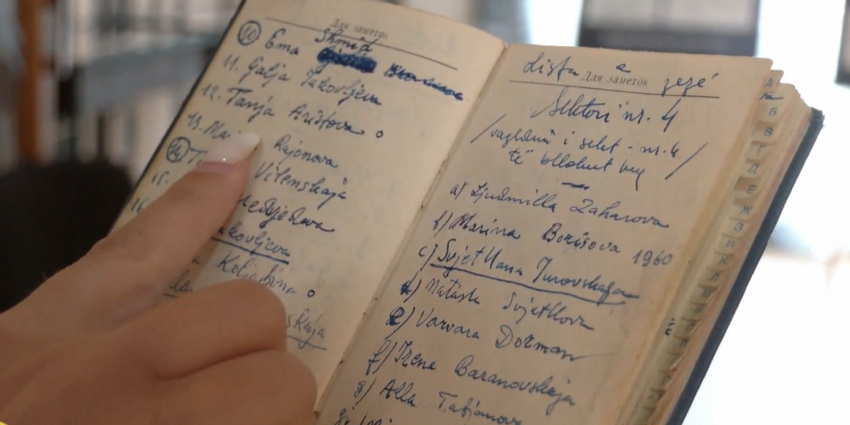 Для заметок
10 Ema Shmid
11. Galja Jakovljeva
12. Tanja Aristova
13. Ma Rajonova
14 T Vitenskaja
15.
16
Jakovljeva
Koljabina
skaja
Lista e zezë
Для заметок
Sektori nr. 4
/vazhdim i sekt. nr. 4/
të bllokut
a) Ljudmilla Zaharova
b) Marina Borisova 1960
c) Svjetllana Jurovskaja
d) Natasha Svjetllova
e) Varvara Dorman
f) Irena Baranovskaja
g) Alla Tatjanova